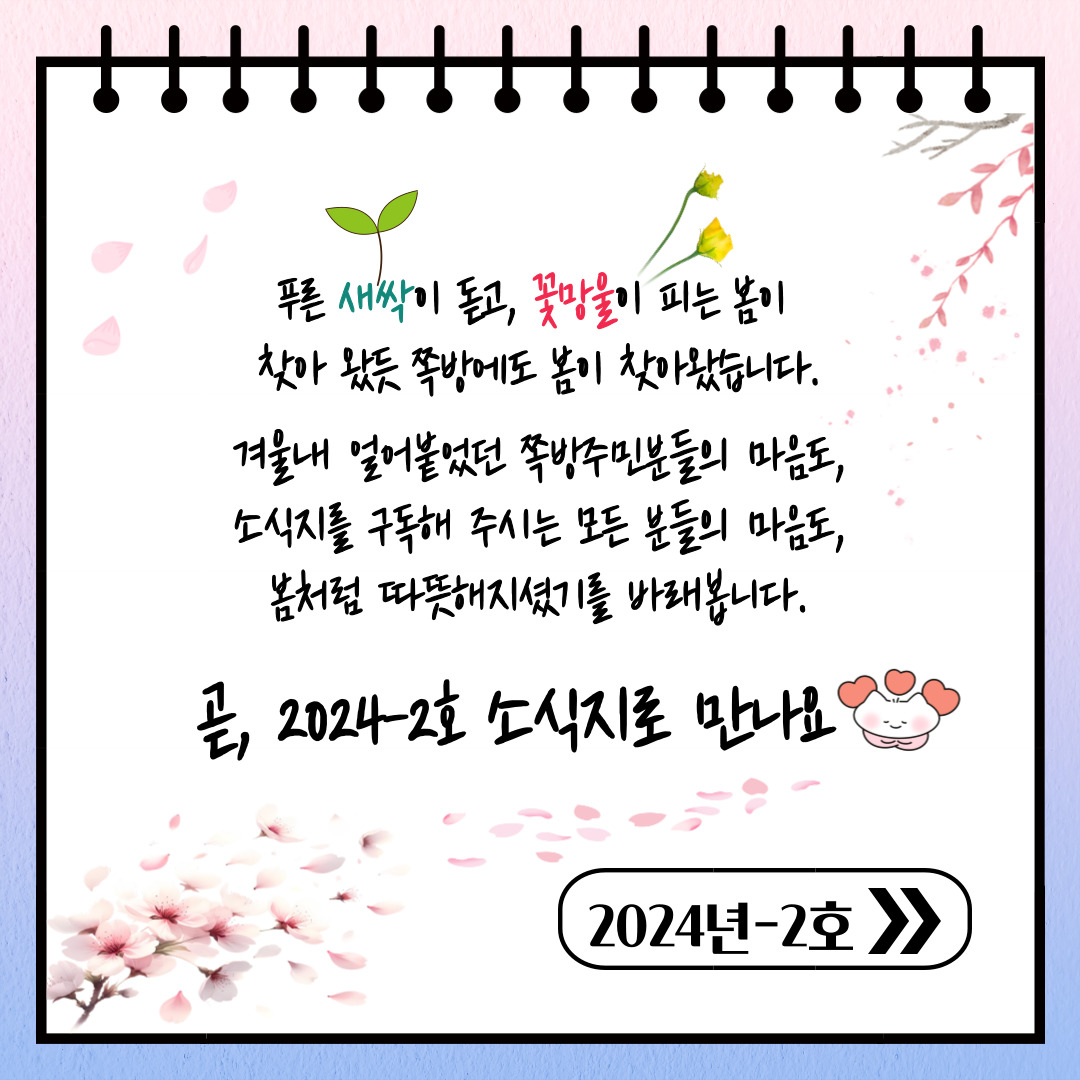 푸른 새싹이 돋고, 꽃망울이 피는 봄이
찾아 왔듯 쪽방에도 봄이 찾아왔습니다.
겨울내 얼어붙었던 쪽방주민분들의 마음도,
소식지를 구독해 주시는 모든 분들의 마음도,
봄처럼 따뜻해지셨기를 바래봅니다.
곧, 2024-2호 소식지로 만나요
2024년-2호